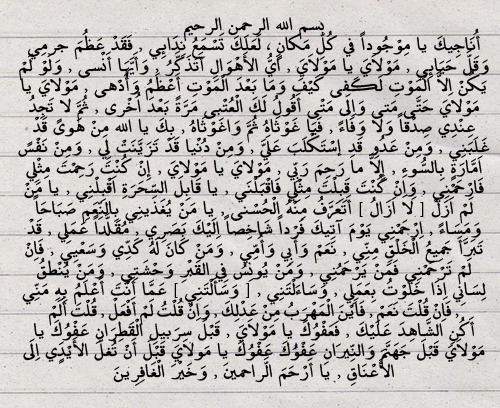 بسم الله الرحمن الرحيم
أُنَاجِيكَ يا مَوْجُوداً في كُلِّ مَكانٍ لَعَلَّكَ تَسْمَعُ نِدَايِي , فَقَدْ عَظُمَ جرمِي
وَقَلَّ حَيَايِي , مَوْلَايَ يا مَوْلَايَ , أَيَّ الأَهْوَالِ أَتَذَكَّرُ , وَأَيَّهَا أَنْسى , وَلَوْ لَمْ
يَكُنْ إِلاَّ الْمَوْتِ لَكَفى كَيْفَ وَمَا بَعْدَ الْمَوْتِ أَعْظَمُ وَأَدْهى , مَوْلَايَ يا
مَوْلايَ حَتَّى مَتى وَإِلى مَتْى أَقُولُ لَكَ الْعُتْبى مَرَةً بَعْدَ أُخْرى , ثُمَّ لا تَجِدُ
عِنْدِي صِدْقاً وَلا وَفَاءً , فَيا غَوْثَاهُ ثُمَّ وَاغَوْثَاهُ , بِكَ يا الله مِنْ هُوىً قَدْ
غَلَبَنِي , وَمِنْ عَدُوٍ قَدِ إسْتَكْلَبَ عَلَيَّ , وَمِنْ دُنْيا قَدْ تَزَيَّنَتْ لِي , وَمِنْ نَفْسٍ
أمَّارَةٍ بِالسُّوءِ , إِلاَّ ما رَحِمَ رَبِّي , مَوْلايَ يا مَوْلايَ , إِنْ كُنْتَ رَحِمْتَ مِثْلِي
فَارْحَمْنِي , وَإِنْ كُنْتَ قَبِلْتَ مِثْلِي فَاقْبَلْنِي , يا قَابِلَ السَّحَرَةِ اقْبِلْنِي , يا مَنْ
لَمْ أزَلْ [ لا أزَالُ ] أَتَعَرَّفُ مِنْهُ الْحُسْنى , يا مَنْ يُغَذِّينِي بِالنِّعَمِ صَبَاحاً
وَمَسَاءً , ارْحَمْنِي يَوْمَ آتِيكَ فَرْداً شَاخِصاً إلَيْكَ بَصَرِي , مُقَلِّداً عَمَلِي , قَدْ
تَبَرَّأَ جَمِيعُ الْخَلْقِ مِنِّي , نَعَمْ وَأَبِي وَأُمِّي , وَمَنْ كَانَ لَهُ كَدِّي وَسَعْيِي , فَإِنْ
لَمْ تَرْحَمْنِي فَمَنْ يَرْحَمُنِي , وَمَنْ يُونِسُ فِي الْقَبْرِ وَحْشَتِي , وَمَنْ يُنْطِقُ
لِسَانِي إِذَا خَلَوْتُ بِعَمَلِي , وَسَاءَلْتَنِي , [ وَسَأَلْتَنِي ] عَمَّا أَنْتَ أَعْلَمُ بِهِ مِنِّي
, فَإِنْ قُلْتُ نَعَمْ , فَأَيْنَ الْمَهْرَبُ مِنْ عَدْلِكَ , وَإنْ قُلْتُ لَمْ أَفْعَلْ , قُلْتَ أَلَمْ
أَكُنِ الشَّاهِدَ عَلَيْكَ , فَعَفْوَكَ يا مَوْلايَ , قَبْلَ سِرَبِيلِ الْقَطِرَانِ عَفْوَكَ يا
مَوْلَايَ قَبْلَ جَهَنَّمَ وَالنِّيرَانِ عَفْوَكَ عَفْوَكَ يا مَولايَ قَبْلَ أَنْ تُغَلَّ الأَيْدِي إِلَى
الأَعْنَاقِ , يا أَرْحَمَ الراحمينَ , وَخَيْرَ الْغَافِرِينَ